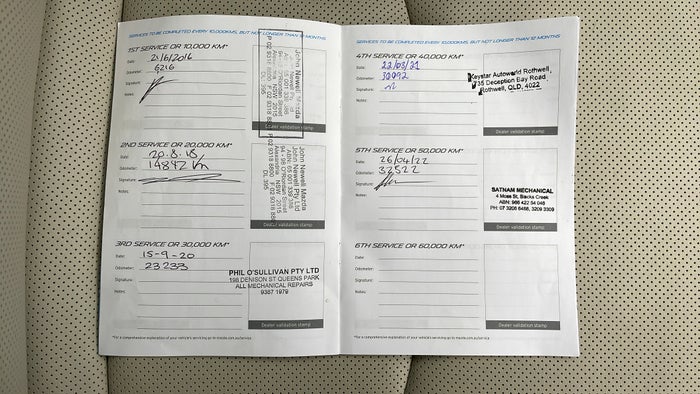 SERVICES TO BE COMPLETED EVERY 10,000KMS, BUT NOT LONGER THAN 12 MONTHS
1ST SERVICE OR 10,000 KM*
Date: 21/6/2016
Odometer: 6216
Signature:
Notes:
John Newell Mazda
John Newell Pty Ltd
Alexandria NSW 2015
DL 395
Dealer validation stamp
2ND SERVICE OR 20,000 KM*
Date: 20.8.18
Odometer: 14842 km
Signature:
Notes:
John Newell Mazda
John Newell Pty Ltd
ABN: 65 001 339 386
94 - 96 O'Riordan Street
Alexandria NSW 2015
P 02 9318 8800 F 02 9318 88
DL 395
Dealer validation stamp
3RD SERVICE OR 30,000 KM*
Date: 15-9-20
Odometer: 23233
Signature:
Notes:
PHIL O'SULLIVAN PTY LTD
198 DENISON ST QUEENS PARK
ALL MECHANICAL REPAIRS
9387 1979
Dealer validation stamp
*For a comprehensive explanation of your vehicle's servicing go to mazda.com.au/service
SERVICES TO BE COMPLETED EVERY 10,000KMS, BUT NOT LONGER THAN 12 MONTHS
4TH SERVICE OR 40,000 KM*
Date: 23/03/21
Odometer: 30092
Signature:
Notes:
Keystar Autoworld Rothwell,
735 Deception Bay Road
Rothwell, QLD, 4022
Dealer validation stamp
5TH SERVICE OR 50,000 KM*
Date: 26/04/22
Odometer: 32522
Signature:
Notes:
SATNAM MECHANICAL
4 Moss St, Slacks Creek
ABN: 986 422 54 046
PH: 07 3208 6488, 3209 3309
Dealer validation stamp
6TH SERVICE OR 60,000 KM*
Date:
Odometer:
Signature:
Notes:
Dealer validation stamp
*For a comprehensive explanation of your vehicle's servicing go to mazda.com.au/service